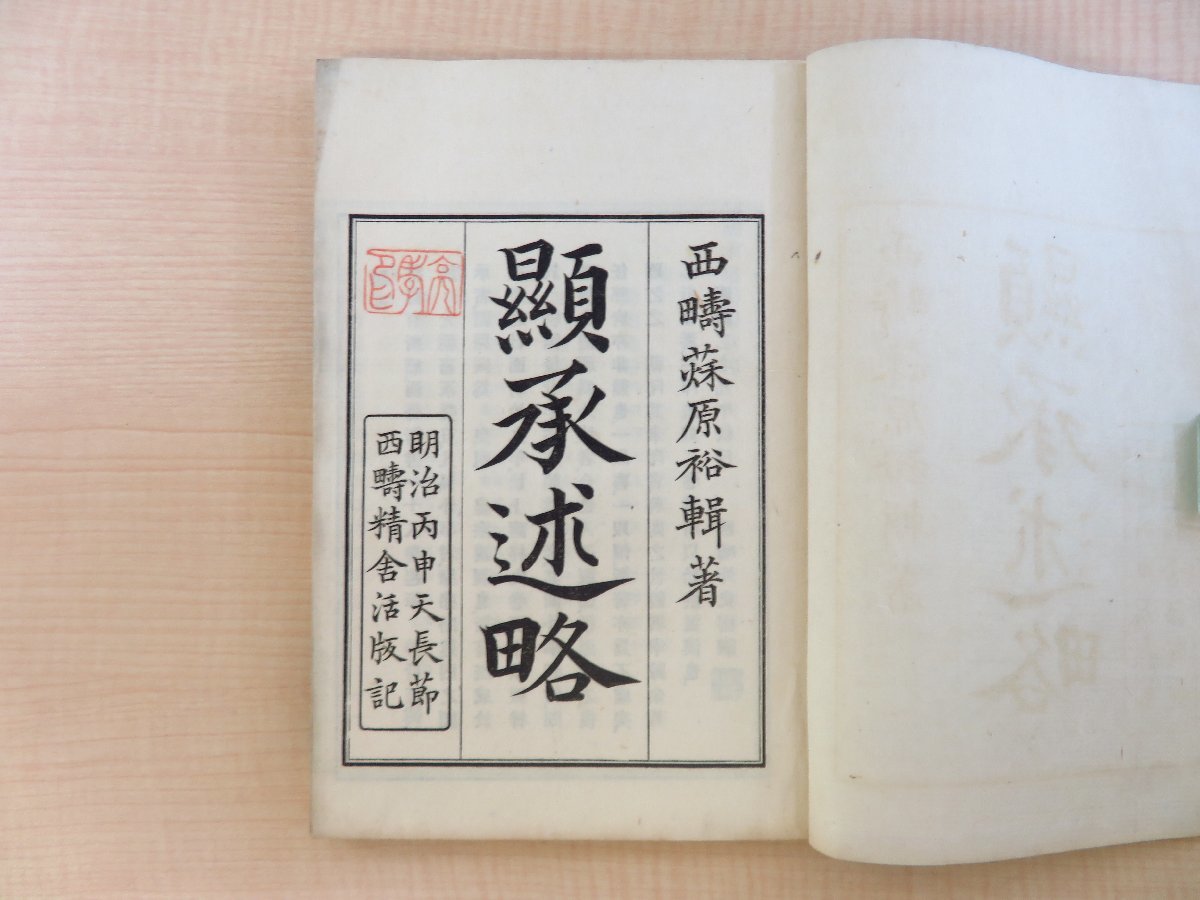 西疇蒣原裕輯著
顯承述略
明治丙申天長節
西疇精舍活版記